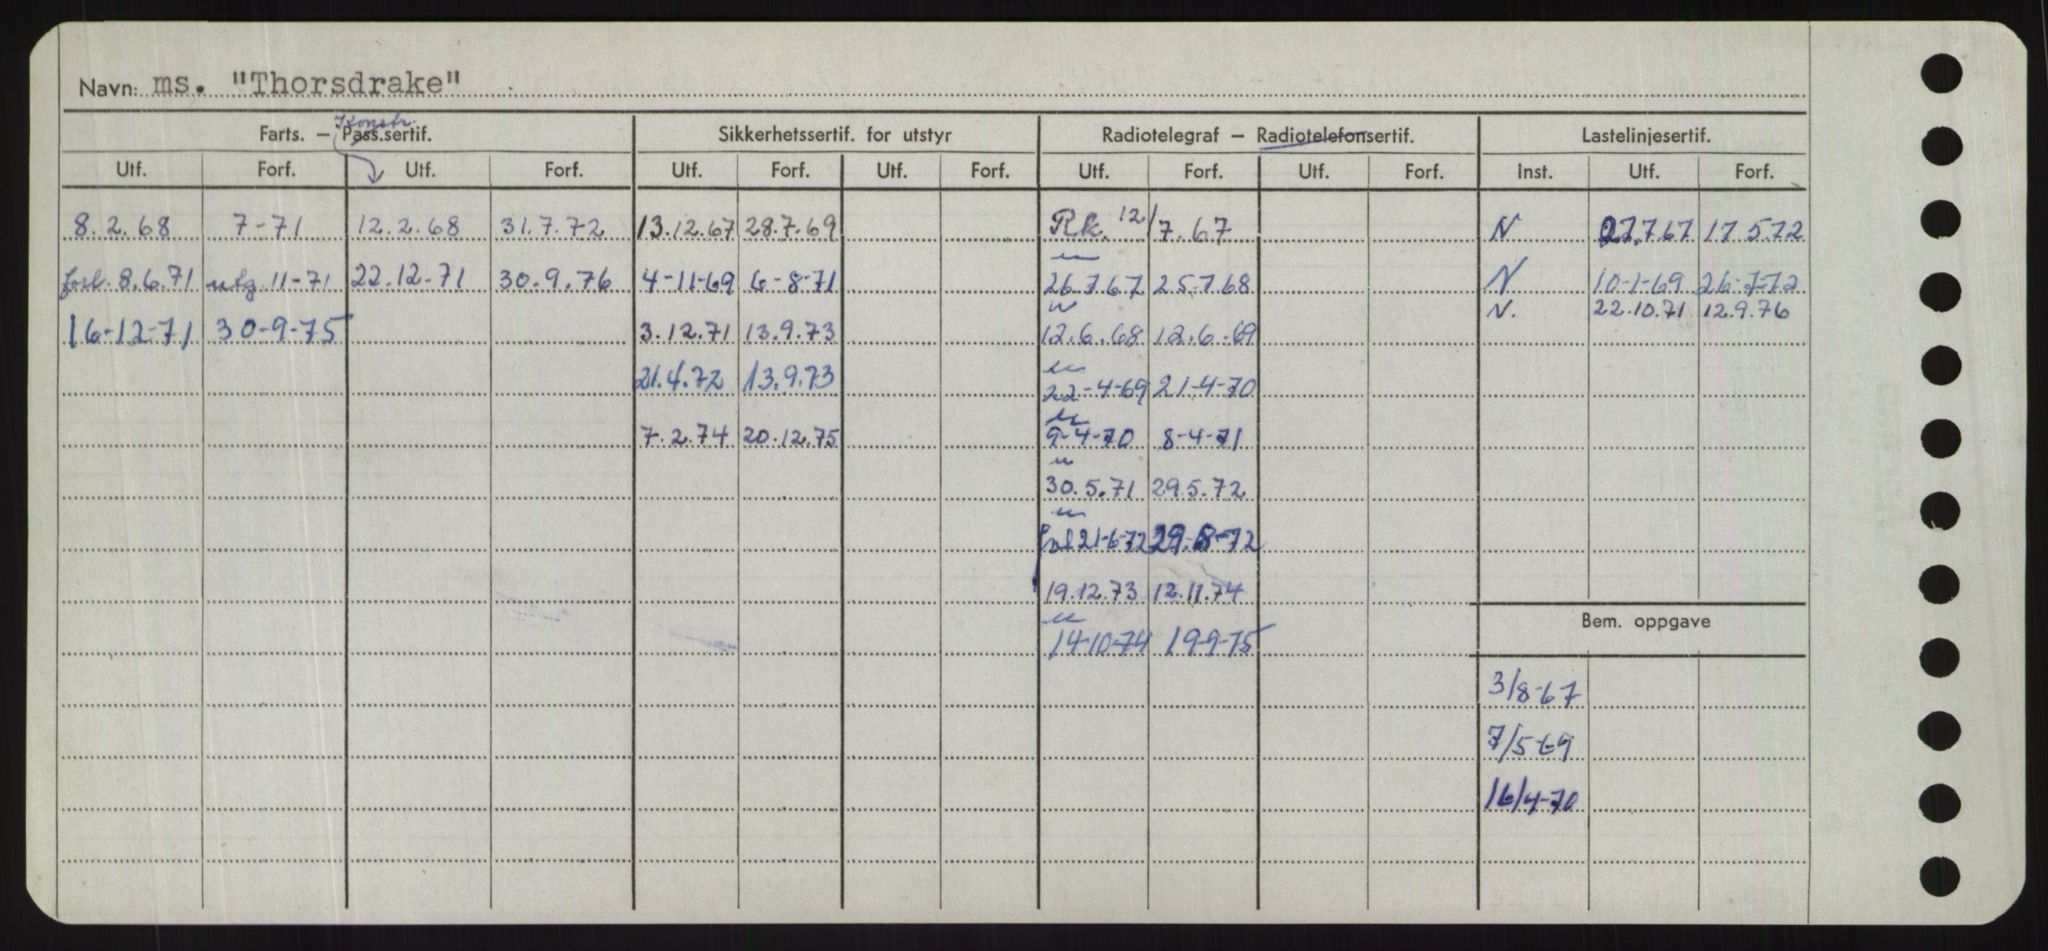 Navn: ms. "Thorsdrake"
Konstr.
Farts. — Pass.sertif. Sikkerhetssertif. for utstyr Radiotelegraf — Radiotelefonsertif. Lastelinjesertif.
Utf. Forf. Utf. Forf. Utf. Forf. Utf. Forf. Utf. Forf. Utf. Forf. Inst. Utf. Forf.
8.2.68 7-71 12.2.68 31.7.72 13.12.67 28.7.69 Rk. 12/7.67 N 27.7.67 17.5.72
forl. 8.6.71 utg. 11-71 22.12.71 30.9.76 4-11-69 6-8-71 26.7.67 25.7.68 N 10-1-69 26-7-72
N. 22.10.71 12.9.76
16-12-71 30-9-75 3.12.71 13.9.73 12.6.68 12.6.69
21.4.72 13.9.73 22-4-69 21-4-70
7.2.74 20.12.75 9-4-70 8-4-71
30.5.71 29.5.72
21-6-72 29-8-72
19.12.73 12.11.74
Bem. oppgave
14-10-74 19-9-75
3/8-67
7/5-69
16/4-70